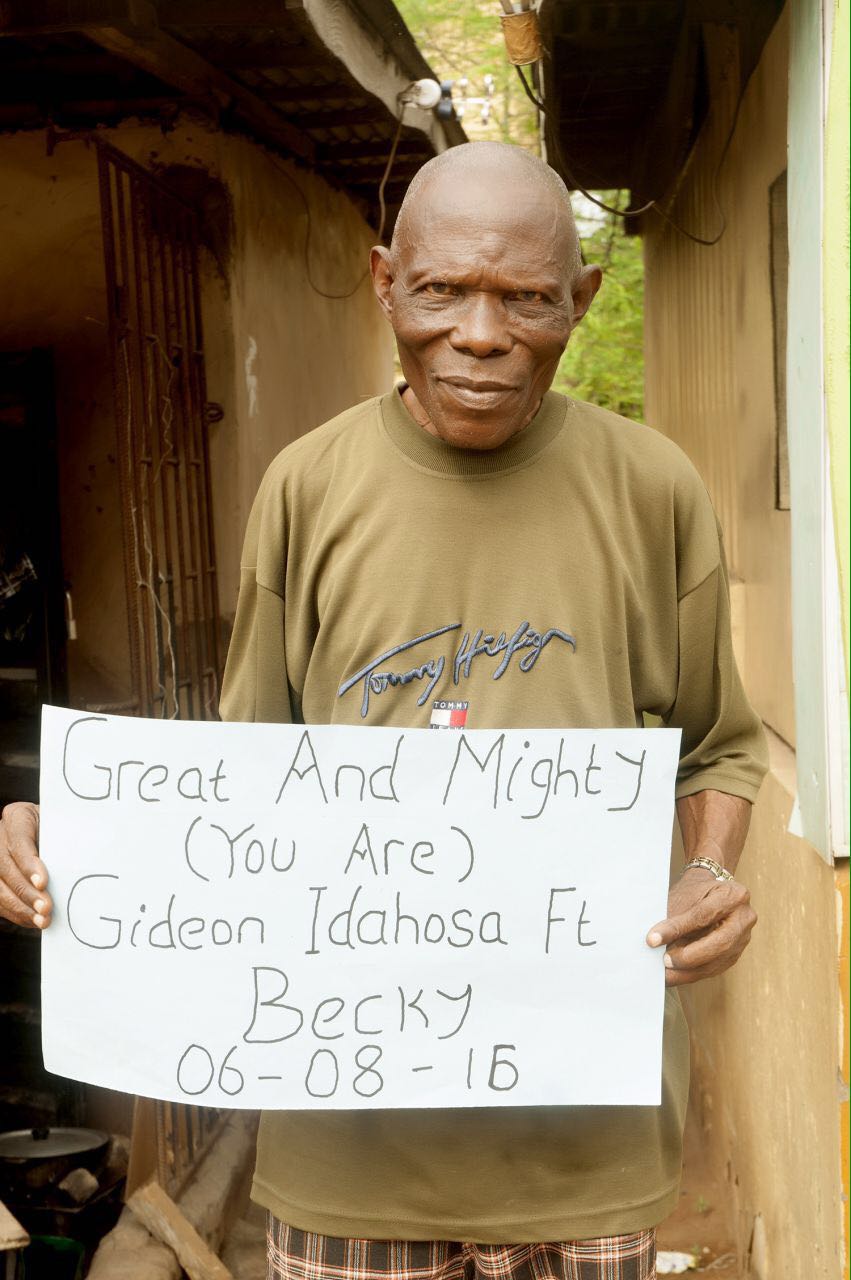 Tommy Hilfiger
TOMMY
Great And Mighty
(You Are)
Gideon Idahosa Ft
Becky
06-08-